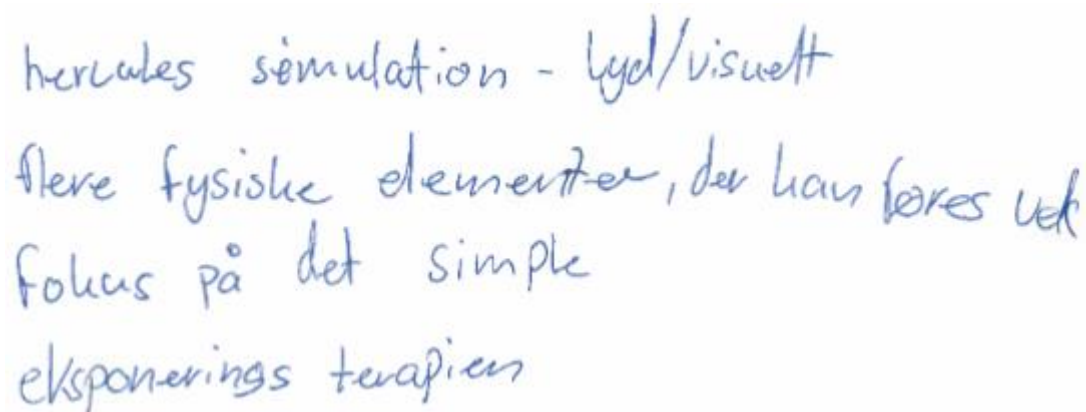 hercules simulation - lyd/visuelt
flere fysiske elementer, der kan føres væk
fokus på det simple
eksponerings terapien